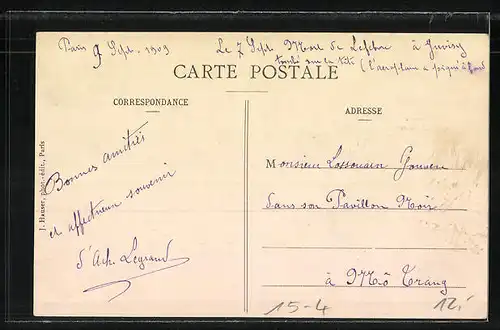 Paris 9 Sept. 1909
Le 7 Sept. Mort de Lefebvre à Juvisy
tombé sur la tête (l'aéroplane a piqué à fond
CARTE POSTALE
CORRESPONDANCE
ADRESSE
J. Hauser, phot.-édit., Paris
Bonnes amitiés
et affectueux souvenir
d'Ach. Legrand
Monsieur
dans son Pavillon Noir
à Mô Trang
15-4
12.